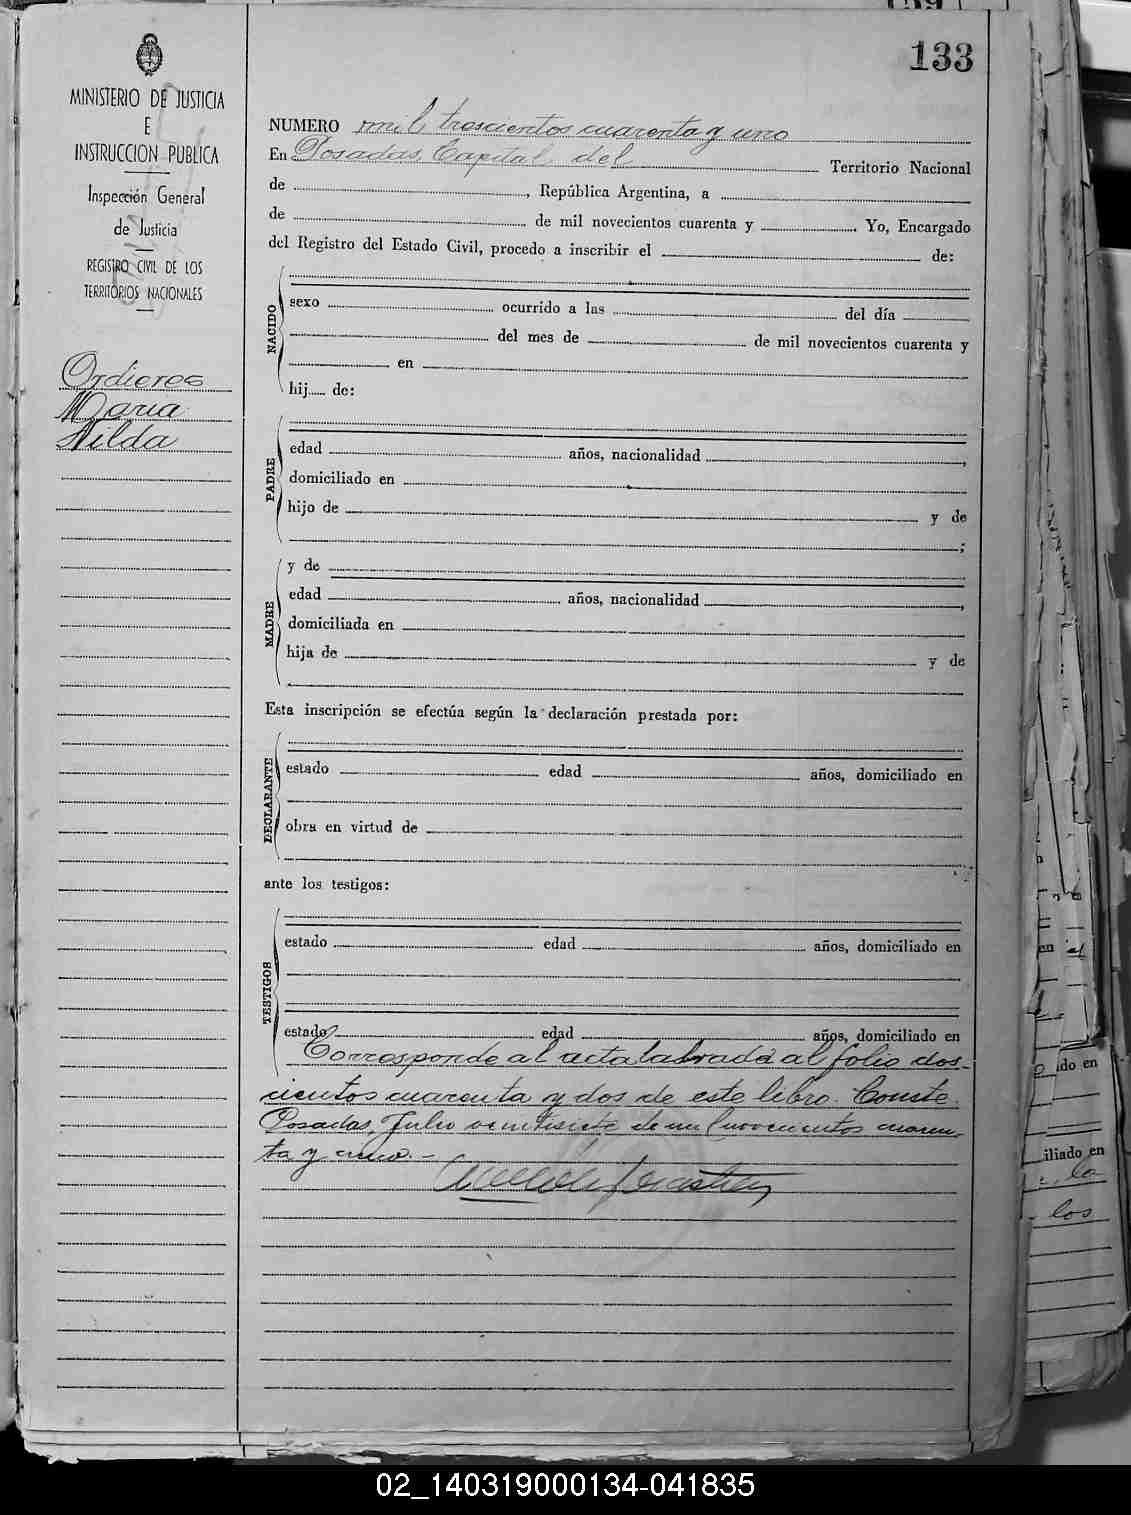 133
MINISTERIO DE JUSTICIA
E
INSTRUCCION PUBLICA
Inspección General
de Justicia
REGISTRO CIVIL DE LOS
TERRITORIOS NACIONALES
Ordieres
Maria
Nilda
NUMERO mil trescientos cuarenta y uno
En Posadas, Capital del Territorio Nacional
de , República Argentina, a
de de mil novecientos cuarenta y . Yo, Encargado
del Registro del Estado Civil, procedo a inscribir el de:
NACIDO
sexo ocurrido a las del día
del mes de de mil novecientos cuarenta y
en
hij de:
PADRE
edad años, nacionalidad ,
domiciliado en
hijo de y de
;
MADRE
y de
edad años, nacionalidad ,
domiciliada en
hija de y de
Esta inscripción se efectúa según la declaración prestada por:
DECLARANTE
estado edad años, domiciliado en
obra en virtud de
ante los testigos:
TESTIGOS
estado edad años, domiciliado en
estado edad años, domiciliado en
Corresponde al acta labrada al folio dos-
cientos cuarenta y dos de este libro. Conste.
Posadas, Julio veintisiete de mil novecientos cuaren-
ta y uno.-
ido en
iliado en
la
los
02_140319000134-041835